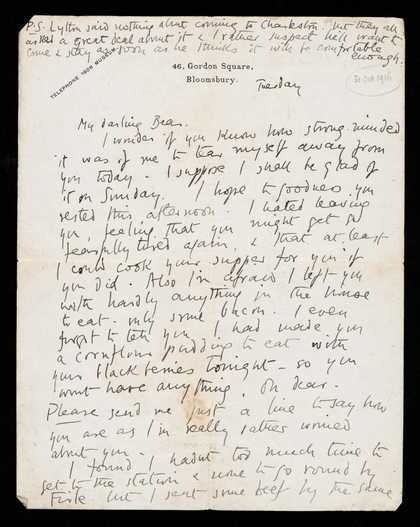 P.S. Lytton said nothing about coming to Charleston. but they all
asked a great deal about it & I rather suspect he'll want to
come & stay as soon as he thinks it will be comfortable
enough.
TELEPHONE 1608 MUSEUM
46, Gordon Square,
Bloomsbury.
Tuesday
31 Oct 1916
My darling Bear.
I wonder if you know how strong minded
it was of me to tear myself away from
you today. I suppose I shall be glad of
it on Sunday. I hope to goodness you
rested this afternoon. I hated leaving
you, feeling that you might get so
fearfully tired again, & that at least
I could cook your supper for you if
you did. Also I'm afraid I left you
with hardly anything in the house
to eat - only some bacon. I even
forgot to tell you I had made you
a cornflour pudding to eat with
your blackberries tonight - so you
wont have anything. Oh dear.
Please send me just a line to say how
you are as I'm really rather worried
about you.
I found I hadnt too much time to
get to the station & none to go round by
Firle but I sent some beef by the same